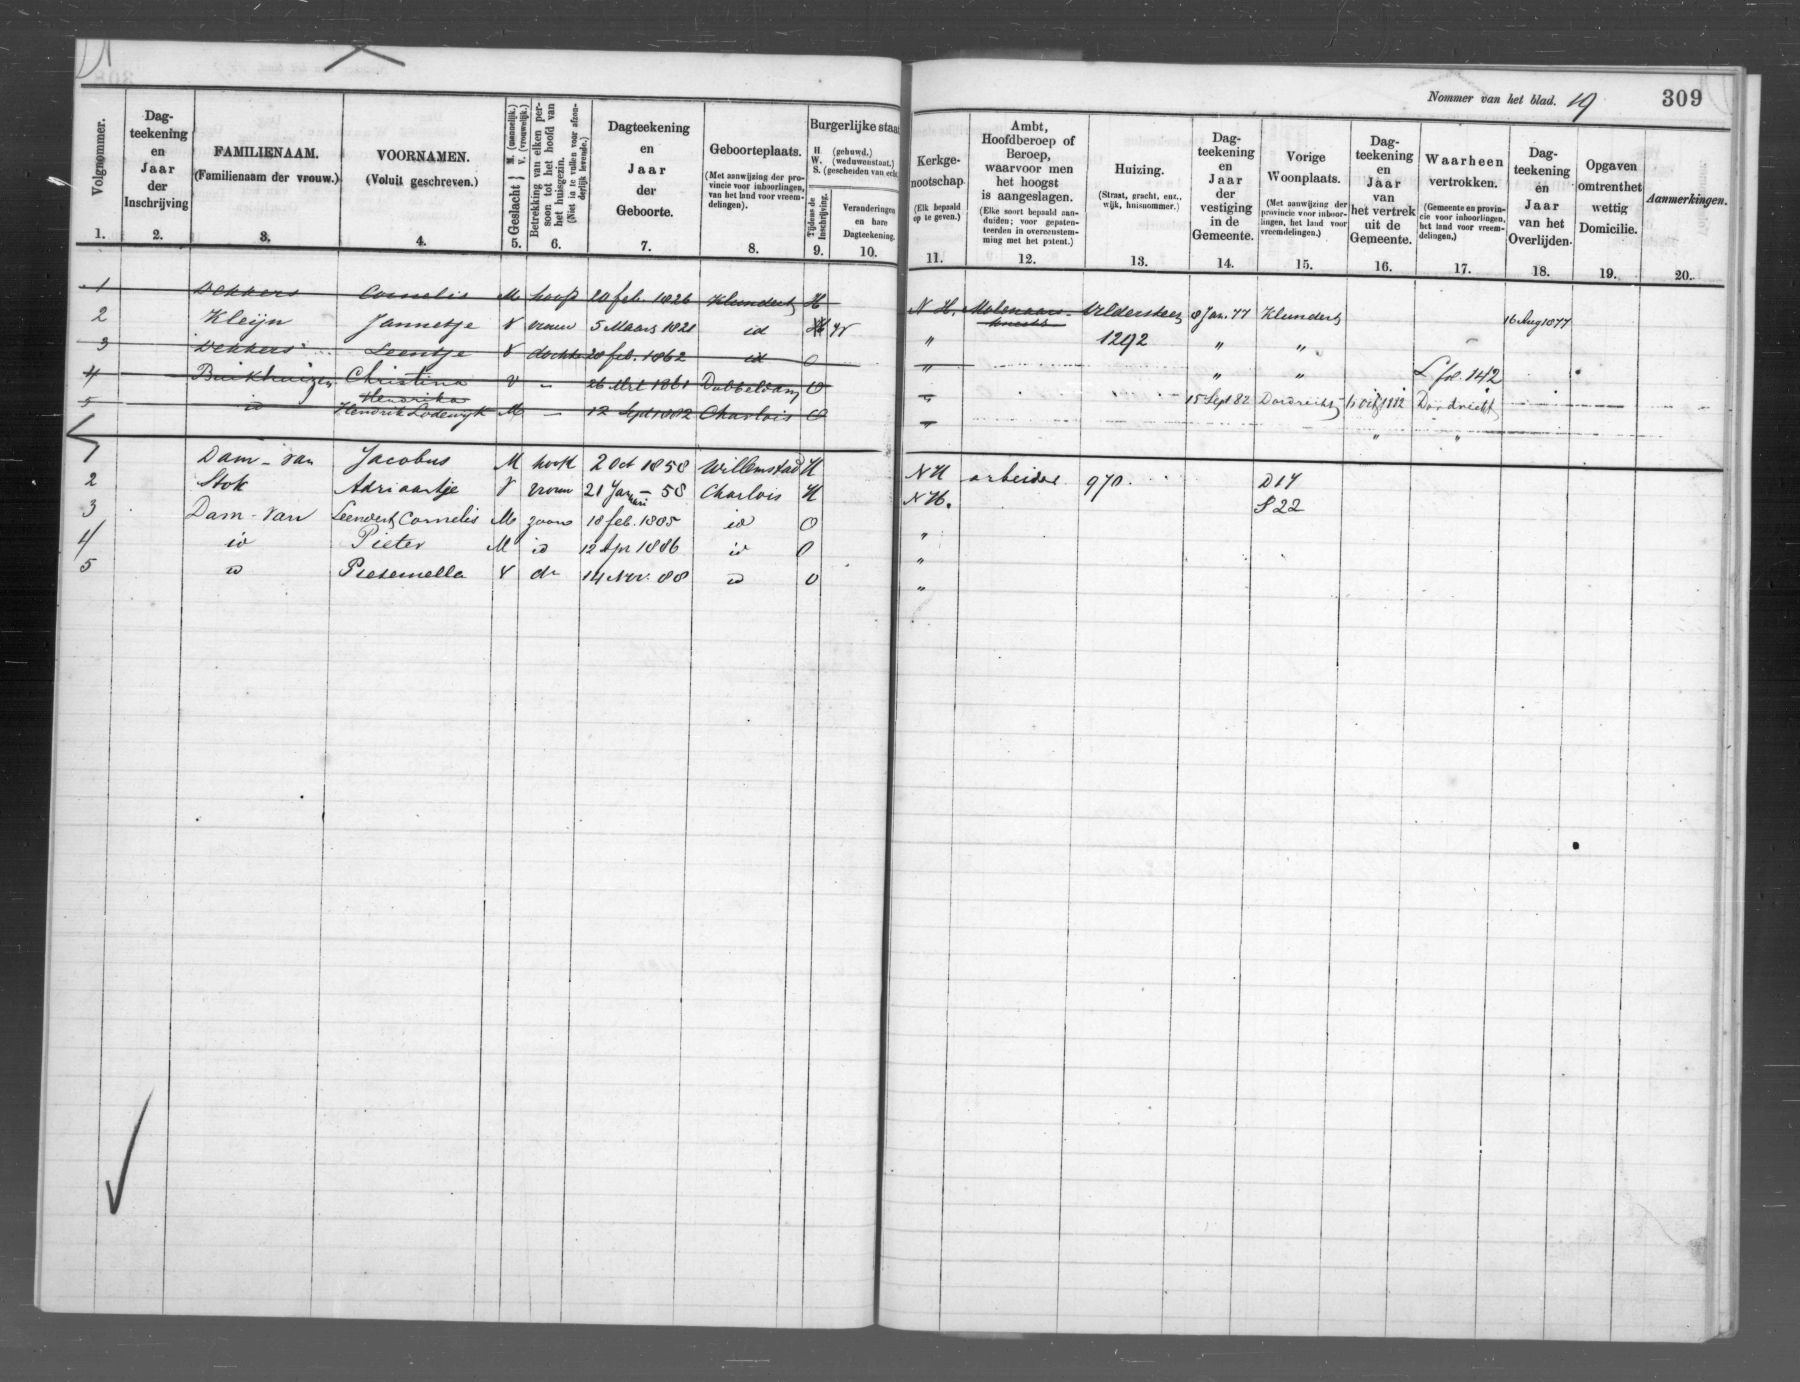 Nommer van het blad. 19 309
Volgnommer.
1.
Dag-
teekening
en
Jaar
der
Inschrijving
2.
FAMILIENAAM.
(Familienaam der vrouw.)
3.
VOORNAMEN.
(Voluit geschreven.)
4.
Geslacht M. (mannelijk.) V. (vrouwelijk.)
5.
Betrekking van elken per-
soon tot het hoofd van
het huisgezin.
(Niet in te vullen voor afzon-
derlijk levende.)
6.
Dagteekening
en
Jaar
der
Geboorte.
7.
Geboorteplaats.
(Met aanwijzing der pro-
vincie voor inboorlingen,
van het land voor vreem-
delingen).
8.
Burgerlijke staat
H. (gehuwd.)
W. (weduwenstaat.)
S. (gescheiden van echt.)
Tijdens de
Inschrijving.
9.
Veranderingen
en hare
Dagteekening.
10.
Kerkge-
nootschap
(Elk bepaald
op te geven.)
11.
Ambt,
Hoofdberoep of
Beroep,
waarvoor men
het hoogst
is aangeslagen.
(Elke soort bepaald aan-
duiden; voor gepaten-
teerden in overeenstem-
ming met het patent.)
12.
Huizing.
(Straat, gracht, enz.,
wijk, huisnommer.)
13.
Dag-
teekening
en
Jaar
der
vestiging
in de
Gemeente.
14.
Vorige
Woonplaats.
(Met aanwijzing der
provincie voor inboor-
lingen, het land voor
vreemdelingen.)
15.
Dag-
teekening
en
Jaar
van
het vertrek
uit de
Gemeente.
16.
Waarheen
vertrokken.
(Gemeente en provin-
cie voor inboorlingen,
het land voor vreem-
delingen.)
17.
Dag-
teekening
en
Jaar
van het
Overlijden.
18.
Opgaven
omtrent het
wettig
Domicilie.
19.
Aanmerkingen.
20.
1 Dekkers Cornelis M hoofd 20 feb. 1826 Klundert H N H. Molenaars- Wldersteeg 8 Jan. 77 Klundert
knecht
2 Kleijn Jannetje V vrouw 5 Maars 1821 id H " 1292 " " 16 Aug 1877
3 Dekkers Leentje V dochter 20 feb. 1862 id O " " " L fol. 142
4 Buikhuizen Christina V 26 Mrt 1861 Dubbeldam O " 15 Sept 82 Dordrecht 1882 Dordrecht
Hendrika
5 id Hendrik Lodewijk M 12 Sept 1882 Charlois O " " "
1 Dam - van Jacobus M hoofd 2 Oct 1858 Willemstad H N H arbeider 970. D 17
2 Stok Adriaantje V vrouw 21 Januari - 58 Charlois H N H. S 22
3 Dam - van Leendert Cornelis M zoon 18 feb. 1885 id O "
4 id Pieter M id 12 Apr 1886 id O "
5 id Pieternella V dr 14 Nov. 88 id O "